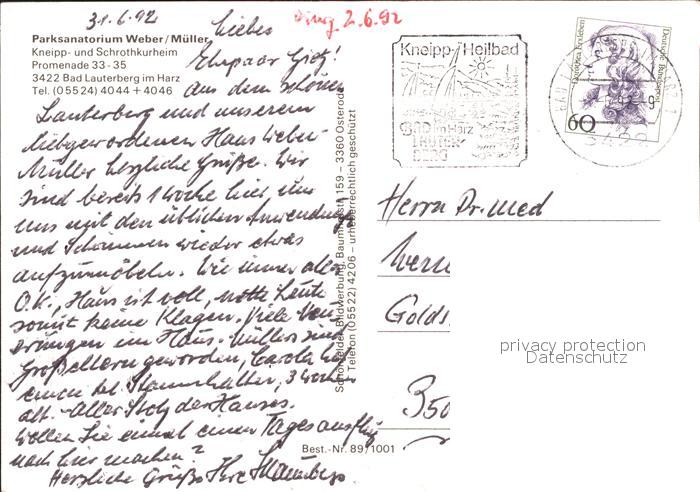 31.6.92
Eing. 2.6.92
Parksanatorium Weber/Müller
Kneipp- und Schrothkurheim
Promenade 33-35
3422 Bad Lauterberg im Harz
Tel. (05524) 4044 + 4046
Liebes
Ehepaar Gietz!
Aus dem schönen
Lauterberg und unserem
liebgewordenen Haus Weber-
Müller herzliche Grüße. Wir
sind bereits 1 Woche hier, um
uns mit den üblichen Anwendungen
und Schwimmen wieder etwas
aufzumöbeln. Wie immer alles
O.K., Haus ist voll, nette Leute
somit keine Klagen. Viele
im Haus. Müllers sind
Großeltern geworden, Carola hat
einen kl. Stammhalter, 3 Wochen
alt. - Aller Stolz des Hauses.
Wollen Sie einmal einen Tagesausflug
nach hier machen?
Herzliche Grüße Ihre
Schöning & Bildwerbung, Baumhofstr. 159 – 3360 Osterode
Telefon (05522) 4206 – urheberrechtlich geschützt
Best.-Nr. 89/1001
Kneipp-Heilbad
BAD im Harz
LAUTER-
BERG
Dorothea Erxleben
Deutsche Bundespost
60
3422
Herrn Dr. med
Wern
Golds
350
privacy protection
Datenschutz